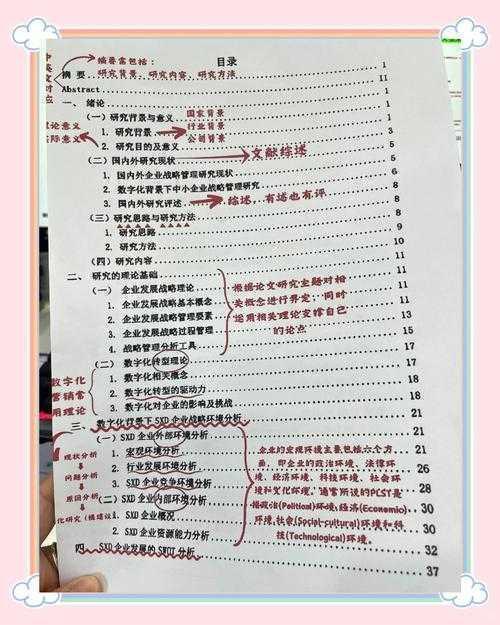 目录
摘要需包括：
研究背景、研究内容、研究方法
摘 要 1
Abstract 11
一、 绪论 1
（一）研究背景与意义 1
国家背景
行业背景
公司背景
1. 研究背景 1
2. 研究目的及意义 3
论意义
际意义
（二）国内外研究现状 5
文献综述
1. 国内外企业战略管理研究现状 5
2. 数字化背景下中小企业战略管理研究 6
3. 国内外研究评述 8
综述，有述也有评
（三）研究思路与研究方法 8
1. 研究思路 8
2. 研究方法 9
（四）研究内容 10
二、 研究的理论基础 11
（一） 企业发展战略理论 11
1. 企业发展战略基本概念 11
2. 企业发展战略管理要素 11
3. 企业发展战略过程管理 13
4. 战略管理分析工具 15
根据论文研究主题对相
关概念进行界定；同时
运用相关理论支撑自己
的论点
（二） 数字化转型理论 17
1. 数字化相关概念 17
2. 数字化转型的驱动力 18
3. 数字化对企业的影响及挑战 18
数字化
营销常
用理论
三、 数字化背景下 SXD 企业战略环境分析 21
（一）SXD 企业外部环境分析 21
1. 宏观环境分析 21
2. 行业发展环境分析 26
3. SXD 企业竞争环境分析 28
（二）SXD 企业内部环境分析 30
1. SXD 企业概况 30
2. SXD 企业资源能力分析 32
四、 SXD 企业发展的 SWOT 分析 37
现状分析
问题分析
原因分析
化研究（提建议
企业的宏观环境主要包括六个方
面，即企业的政治环境、法律环
境、经济环境、科技环境、社会环
境和文化环境。通常所说的PEST是
指政治(Political)环境、经济(Economic)
环境、社会(Social-cultural)环境和科
技(Technological)环境。